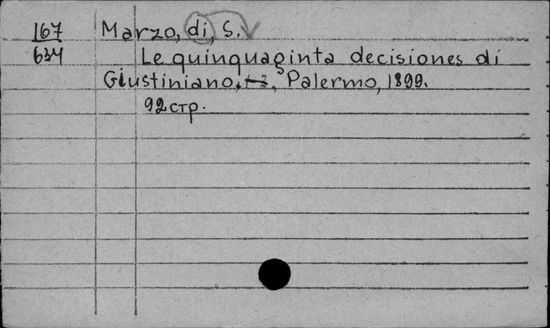 167 Marzo, di, S.
634 Le quinquaginta decisiones di
Giustiniano. Palermo, 1899.
92 стр.